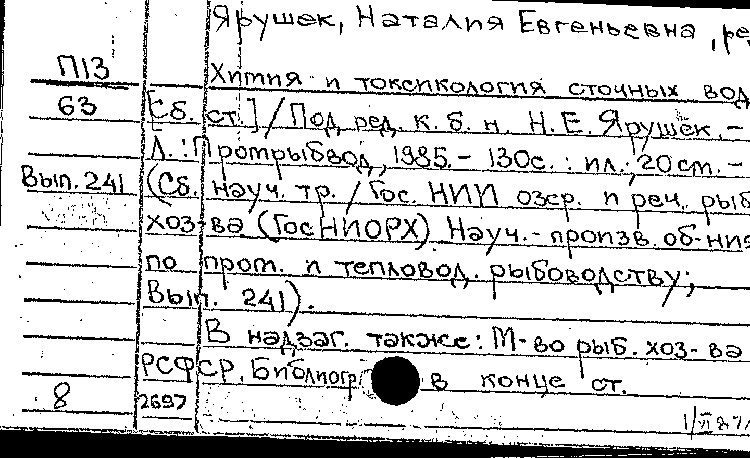 Ярушек, Наталия Евгеньевна, ре
П13
Химия и токсикология сточных вод
63 [Сб. ст.] / Под ред. к. б. н. Н. Е. Ярушек. –
Л.: Промрыбвод, 1985. – 130с.: ил.; 20см. –
Вып. 241 (Сб. науч. тр. / Гос. НИИ озер. и реч. рыб
хоз-ва (ГосНИОРХ) Науч.-произв. об-ния
по пром. и тепловод. рыбоводству;
Вып. 241).
В надзаг. также: М-во рыб. хоз-ва
РСФСР. Библиогр в конце ст.
8 2697